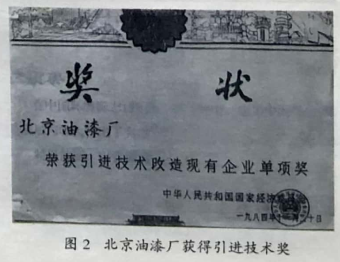 奖 状
北京油漆厂
荣获引进技术改造现有企业单项奖
中华人民共和国国家经济委员会
一九八四年十二月二十日
图 2 北京油漆厂获得引进技术奖